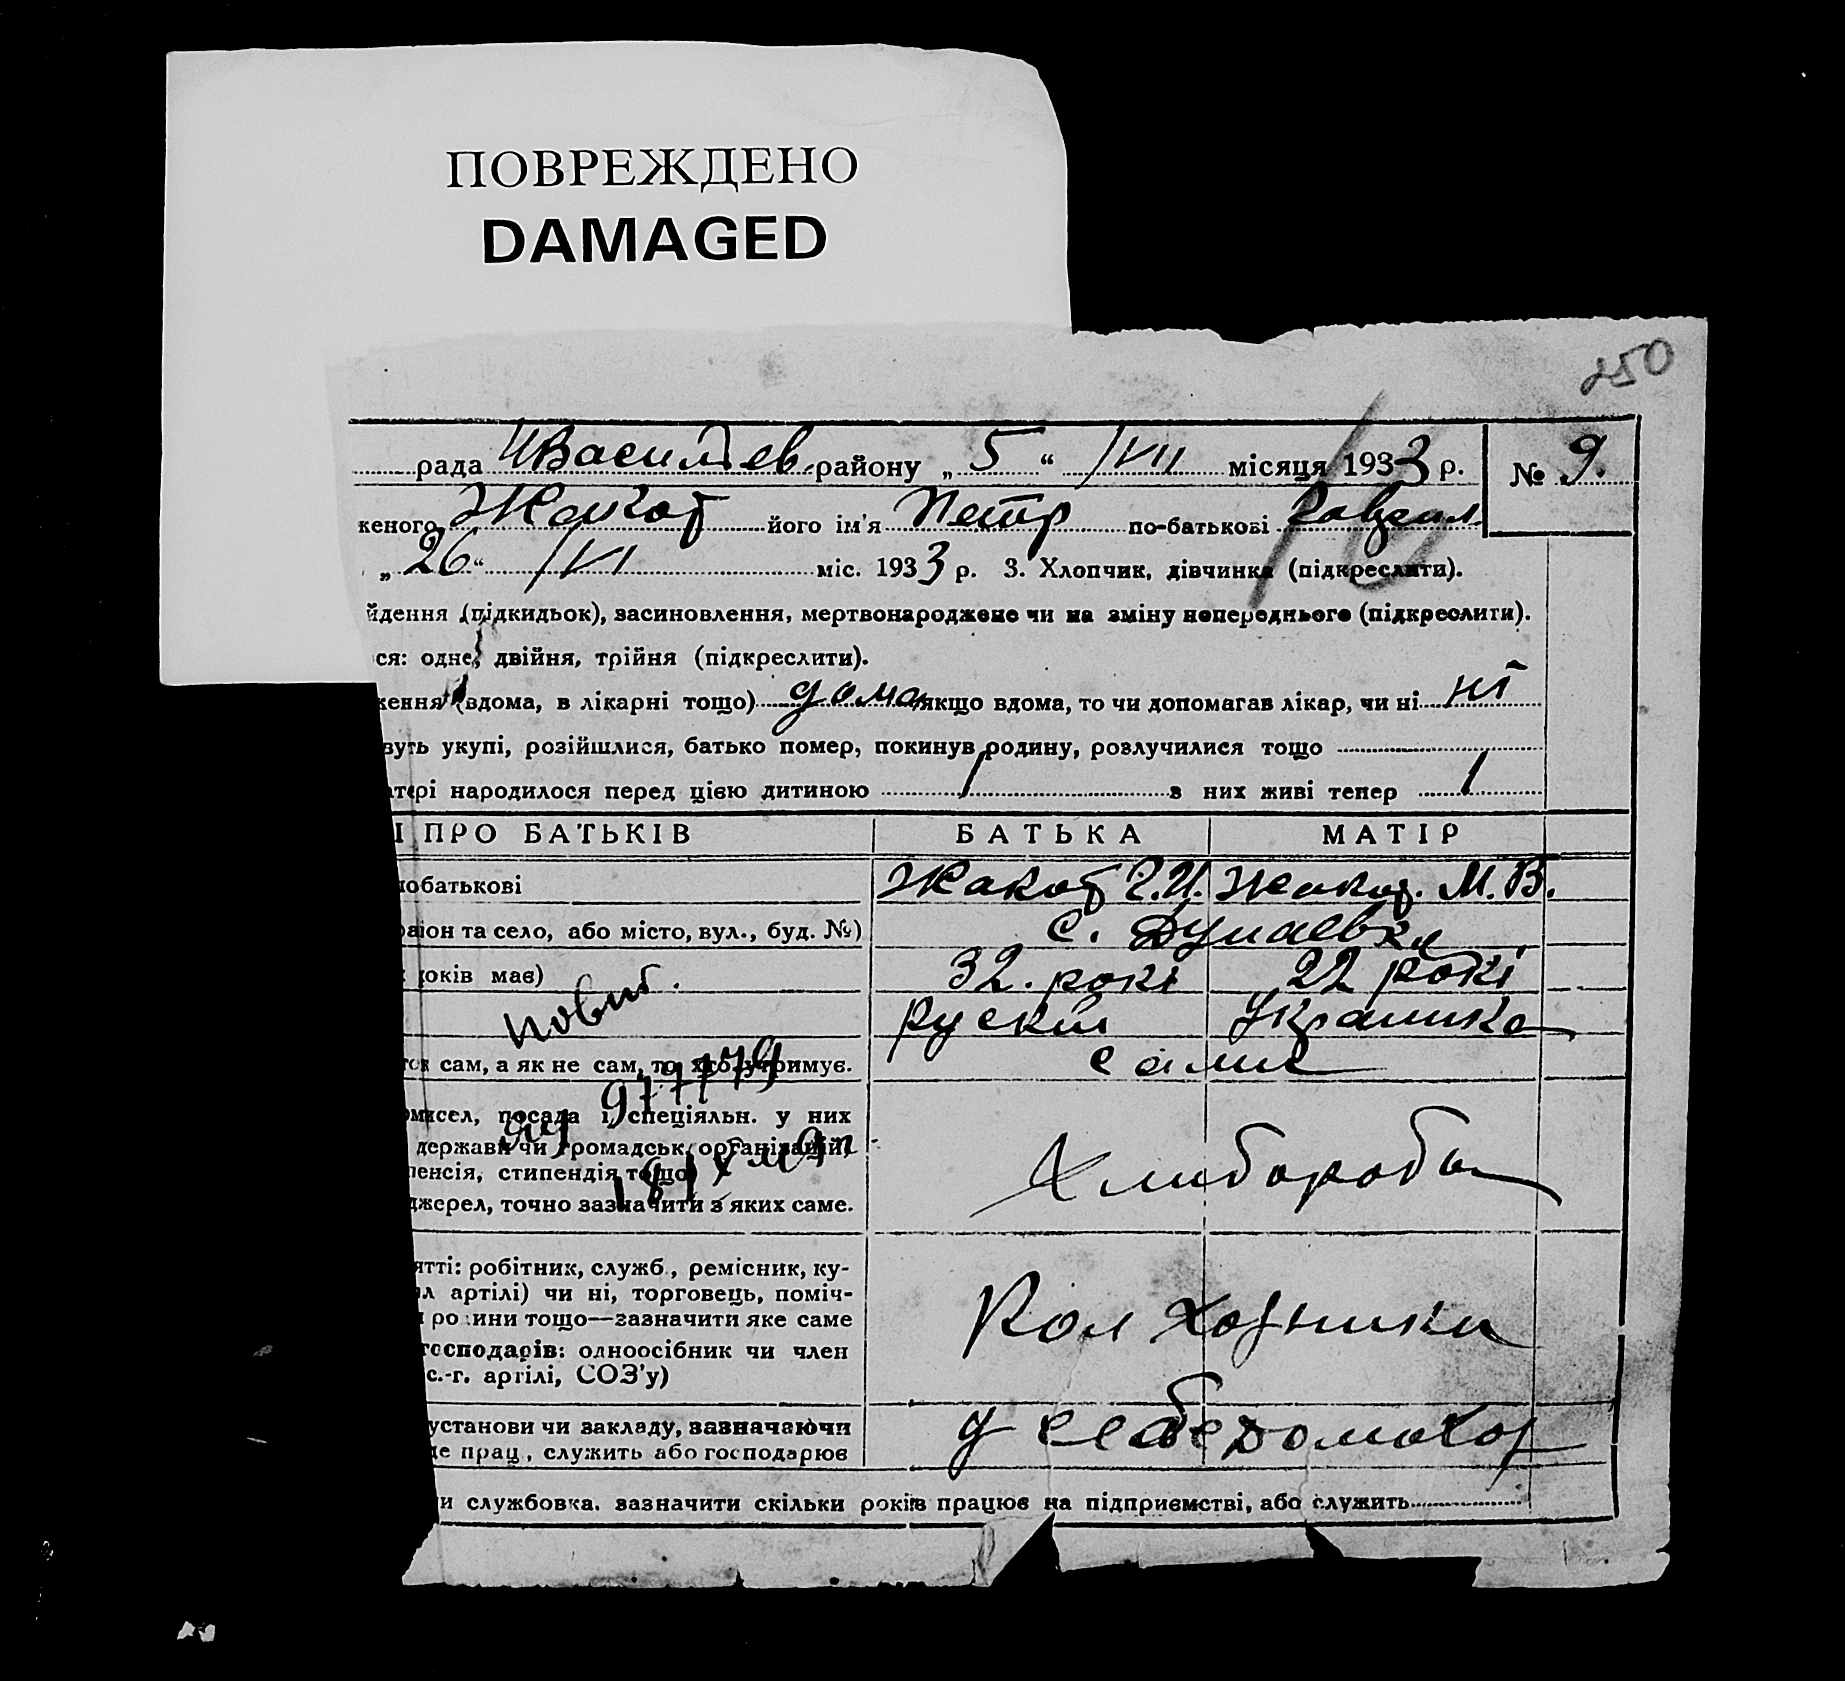 ПОВРЕЖДЕНО
DAMAGED
250
рада району „ 5 “ /VII місяця 1933 р. № 9.
женого його ім'я Петр по-батькові
„ 26 “ /VI міс. 1933 р. 3. Хлопчик, дівчинка (підкреслити).
йдення (підкидьок), засиновлення, мертвонароджене чи на зміну попереднього (підкреслити).
ся: одне, двійня, трійня (підкреслити).
ження (вдома, в лікарні тощо) дома якщо вдома, то чи допомагав лікар, чи ні ні
вуть укупі, розійшлися, батько помер, покинув родину, розлучилися тощо
тері народилося перед цією дитиною 1 з них живі тепер 1
І ПРО БАТЬКІВ БАТЬКА МАТІР
побатькові М. В.
район та село, або місто, вул., буд. №) с.
років має) 32. рокі 22 рокі
рускій Украинка
ток сам, а як не сам, то хто утримує. сами
омисел, посада і спеціяльн. у них
держави чи громадськ. організацій,
пенсія, стипендія тощо
джерел, точно зазначити з яких саме.
Хлибороби
ятті: робітник, служб., ремісник, ку-
л артілі) чи ні, торговець, поміч-
родини тощо—зазначити яке саме
господарів: одноосібник чи член
с.-г. артілі, СОЗ'у)
Колхозники
установи чи закладу, зазначаючи
де прац., служить або господарює
у себе
и службовка. зазначити скільки років працює на підприємстві, або служить